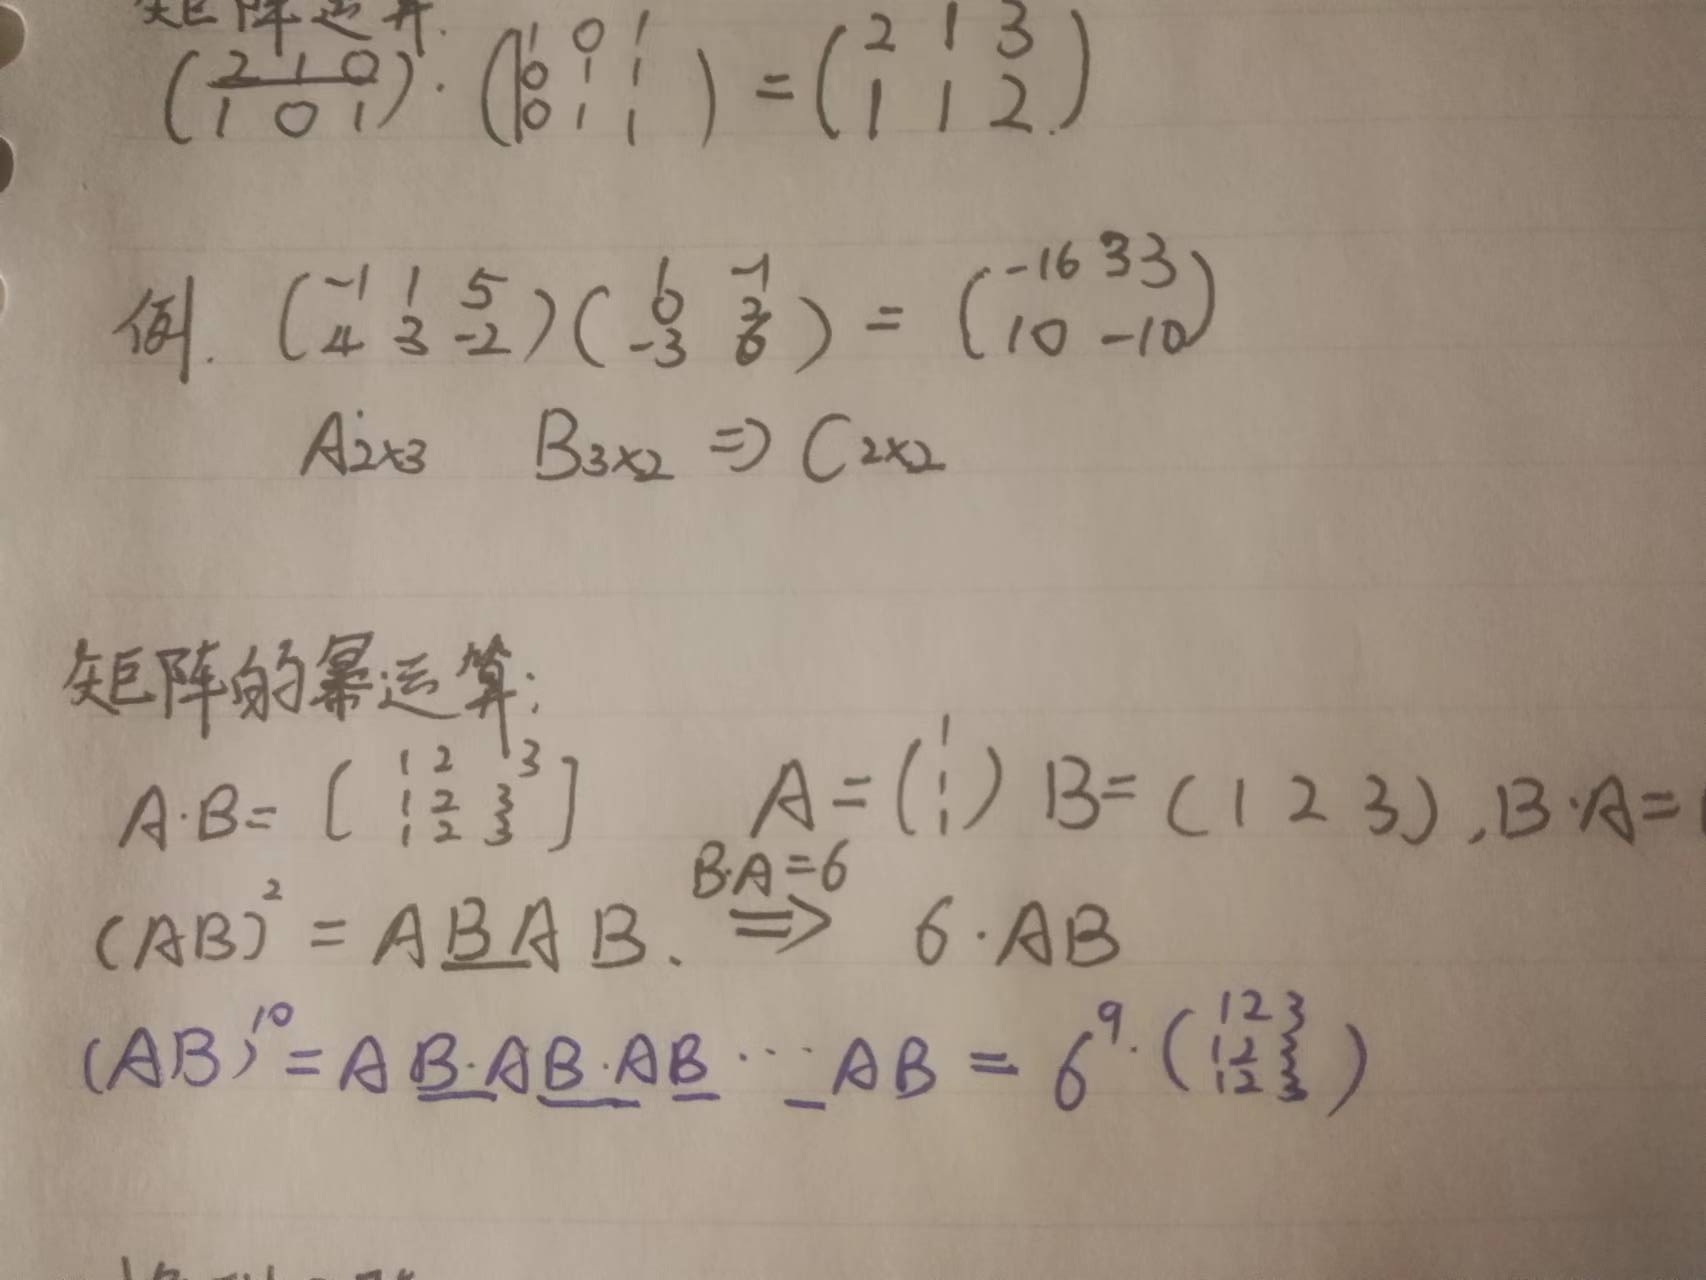 矩阵运算.
(2 1 0 / 1 0 1) · (1 0 1 / 0 1 1 / 0 1 1) = (2 1 3 / 1 1 2)
例. (-1 1 5 / 4 3 -2) (1 -1 / 0 2 / -3 6) = (-16 33 / 10 -10)
A2×3 B3×2 ⇒ C2×2
矩阵的幂运算:
A·B= [1 2 3 / 1 2 3 / 1 2 3] A = (1 / 1 / 1) B= (1 2 3), B·A=
(AB)² = ABAB. B·A=6 ⇒ 6·AB
(AB)¹⁰ = AB·AB·AB ··· AB = 6⁹· (1 2 3 / 1 2 3 / 1 2 3)